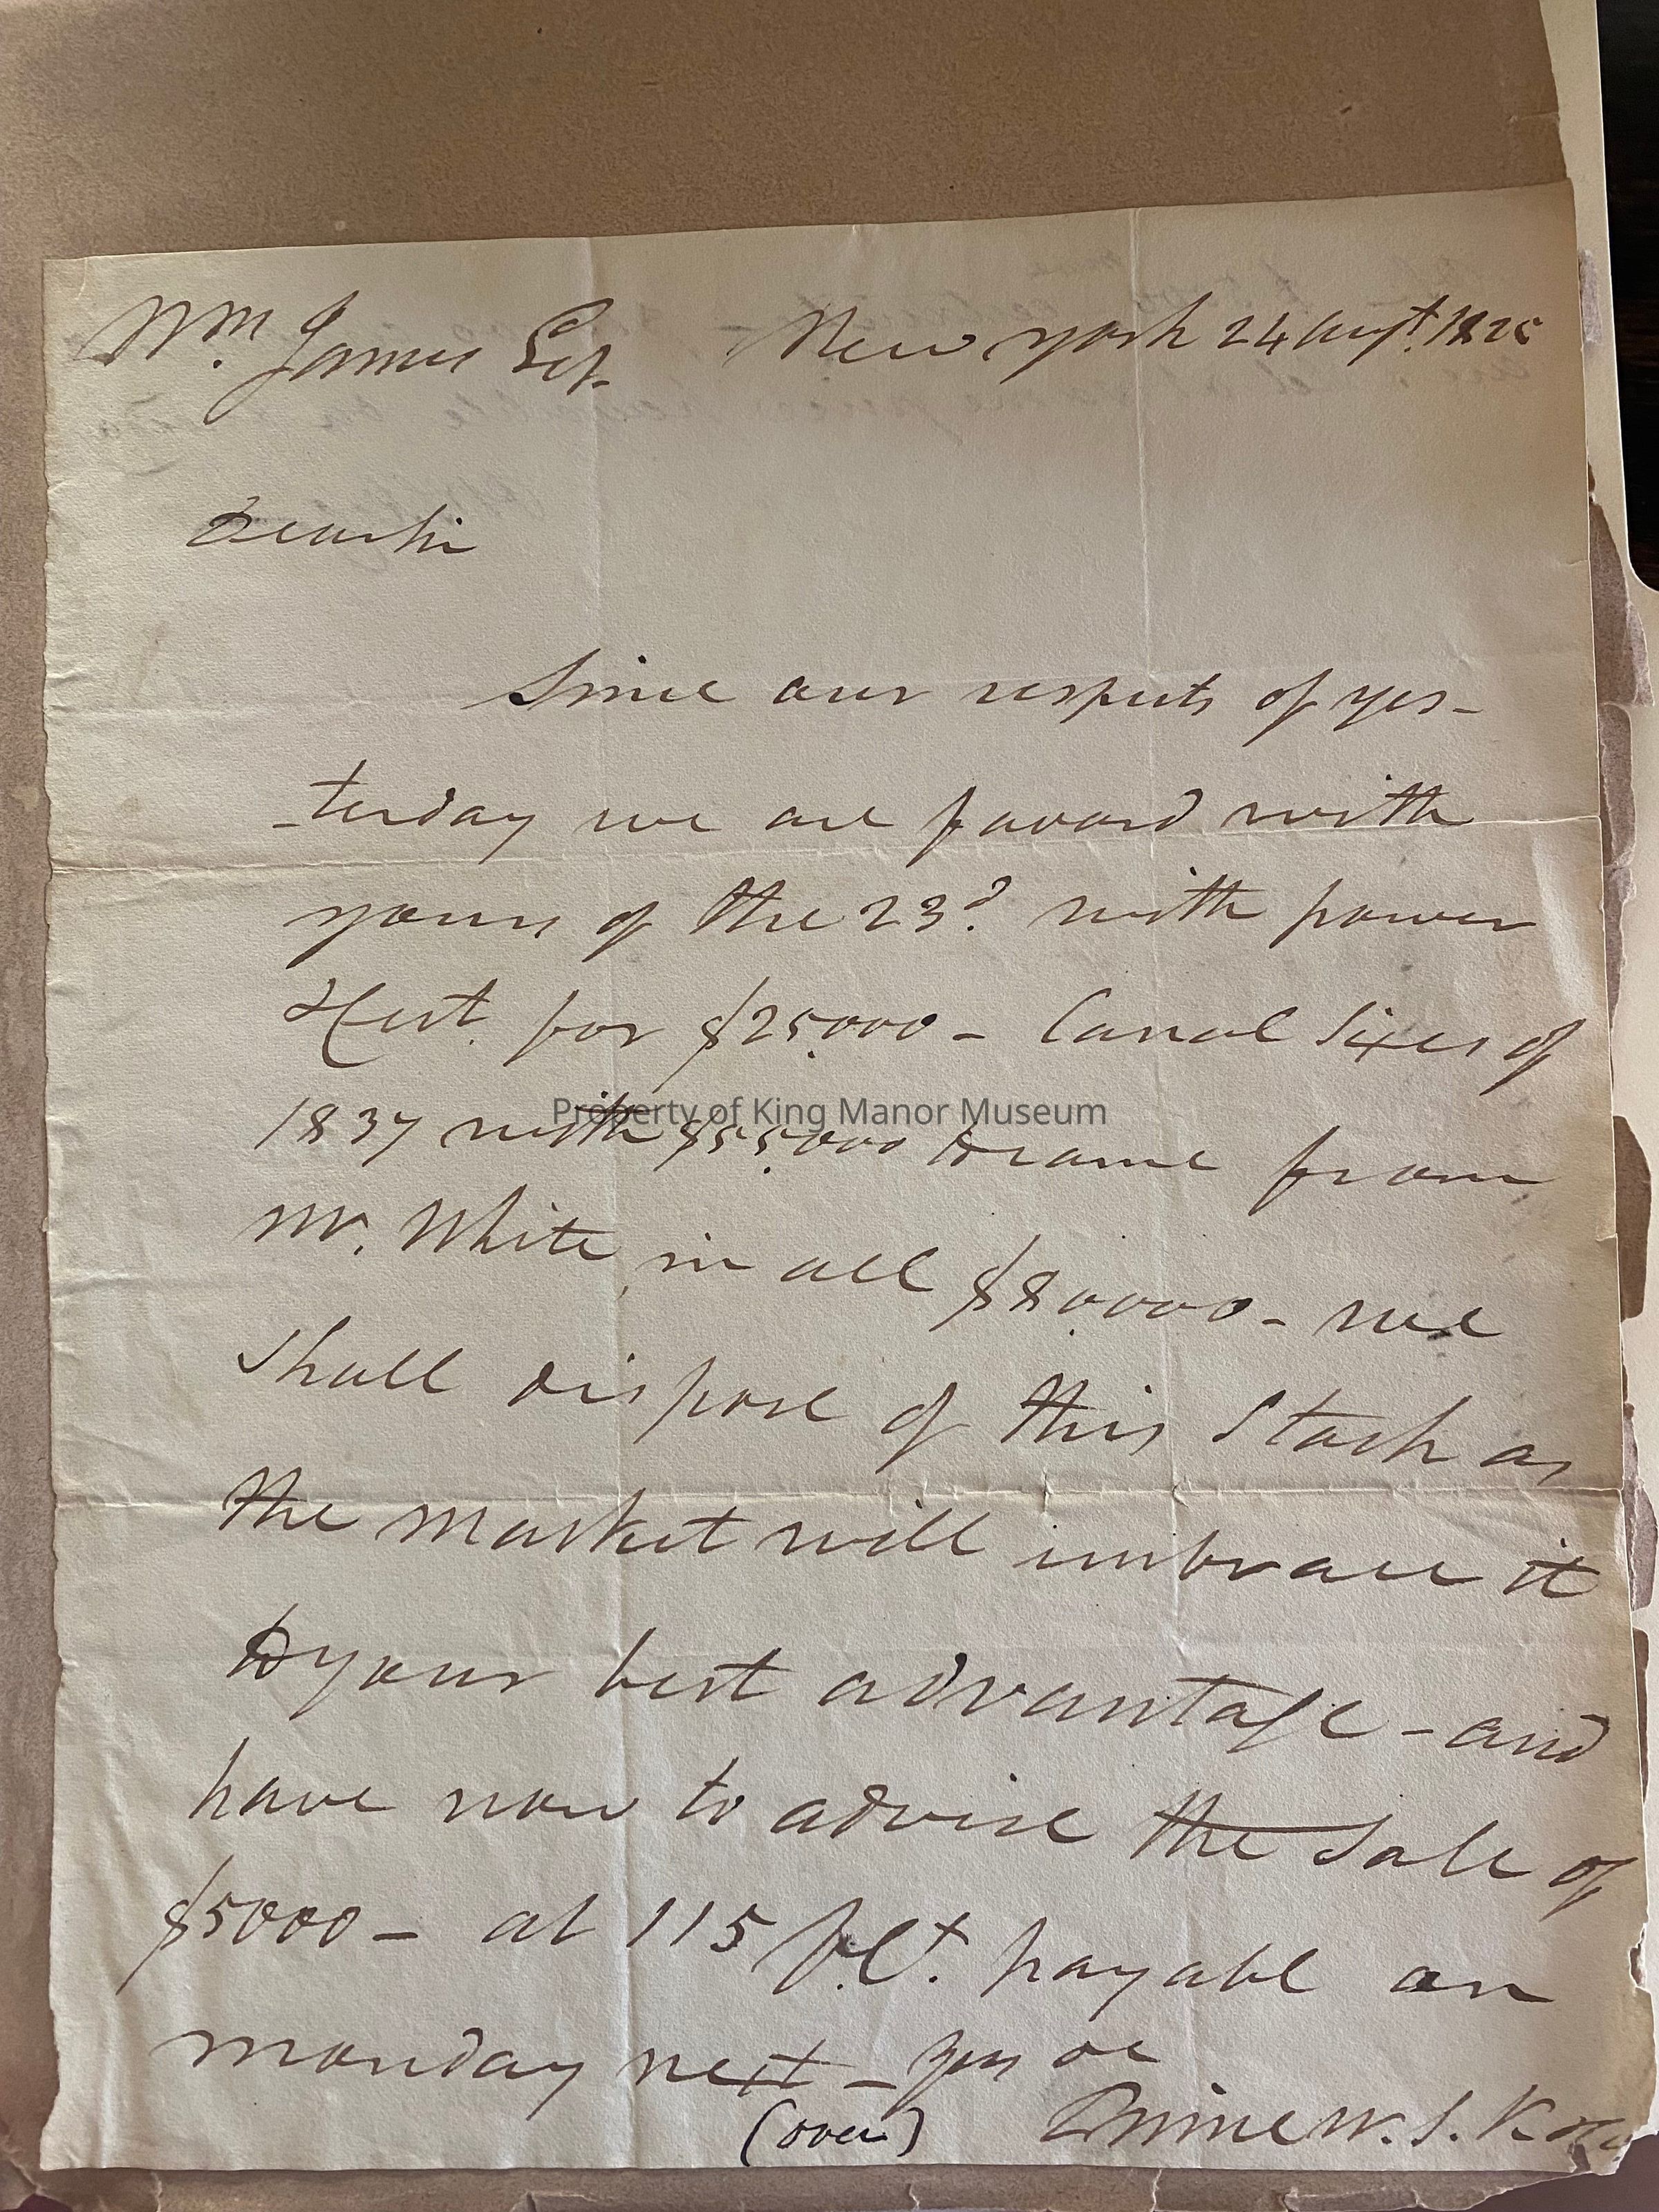 Wm. James Esq. New York 24 Augt. 1825
Dear Sir
Since our respects of yes-
-terday we are favord with
yours of the 23d. with power
& Cert. for $25.000 - Canal Sixes of
1837 with $55.000 to come from
Mr. White in all $80.000 - we
shall dispose of this Stock as
the market will imbrace it
to your best advantage - and
have now to advise the Sale of
$5000 - at 115 P.Ct. payable on
monday next - yrs &c
(over) Prime W. S. King
Property of King Manor Museum